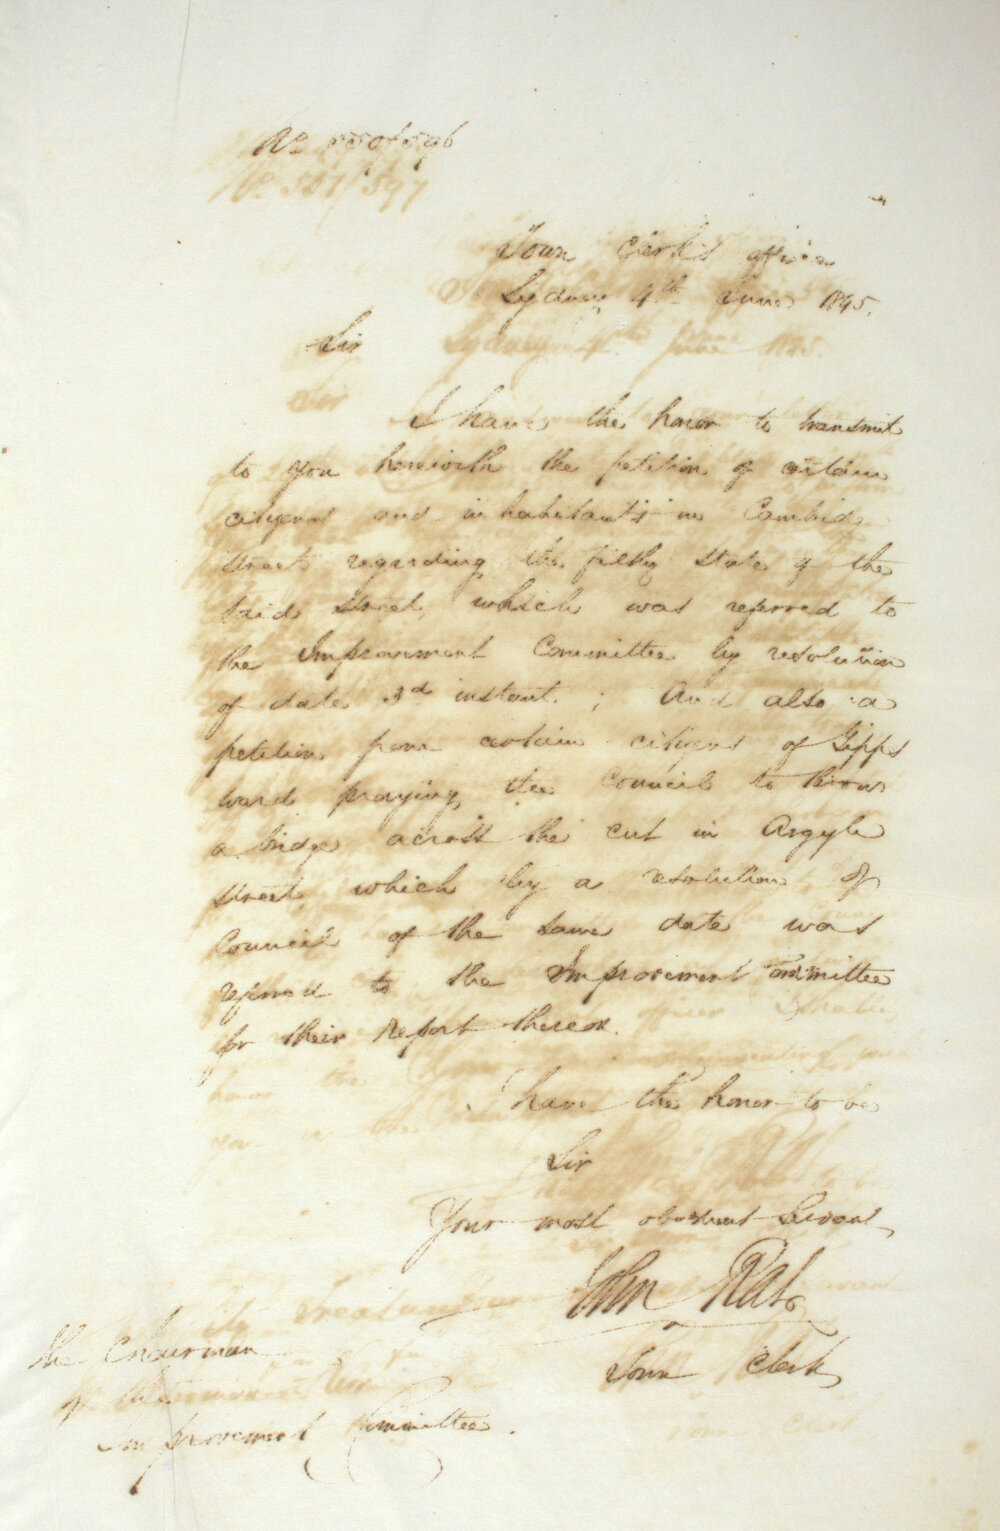 No
Town Clerk's office
Sydney 4th June 1845.
Sir
I have the honor to transmit
to you herewith the petition of certain
citizens and inhabitants in Cambridge
Street regarding the filthy state of the
said street, which was referred to
the Improvement Committee by resolution
of date 3d instant; And also a
petition from certain citizens of Gipps
ward praying the Council to throw
a bridge across the cut in Argyle
street, which by a resolution of
Council of the same date was
referred to the Improvement Committee
for their Report thereon.
I have the honor to be
Sir
Your most obedient Servant,
John Rae
Town Clerk
The Chairman
of the
Improvement Committee.